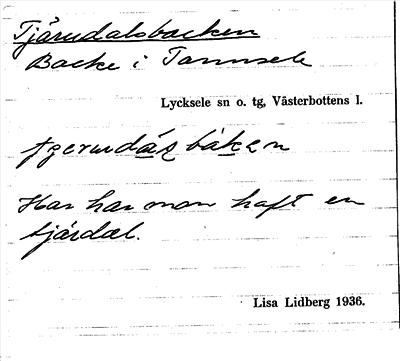 Tjärudalsbacken
Backe i Tannsele
Lycksele sn o. tg, Västerbottens l.
Här har man haft en
tjärdal.
Lisa Lidberg 1936.